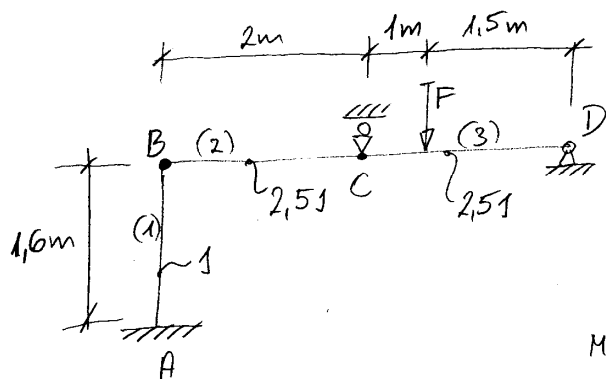 2m
1m
1,5m
F
D
B
(2)
(3)
2,5J
C
2,5J
1,6m
(1)
J
A
M